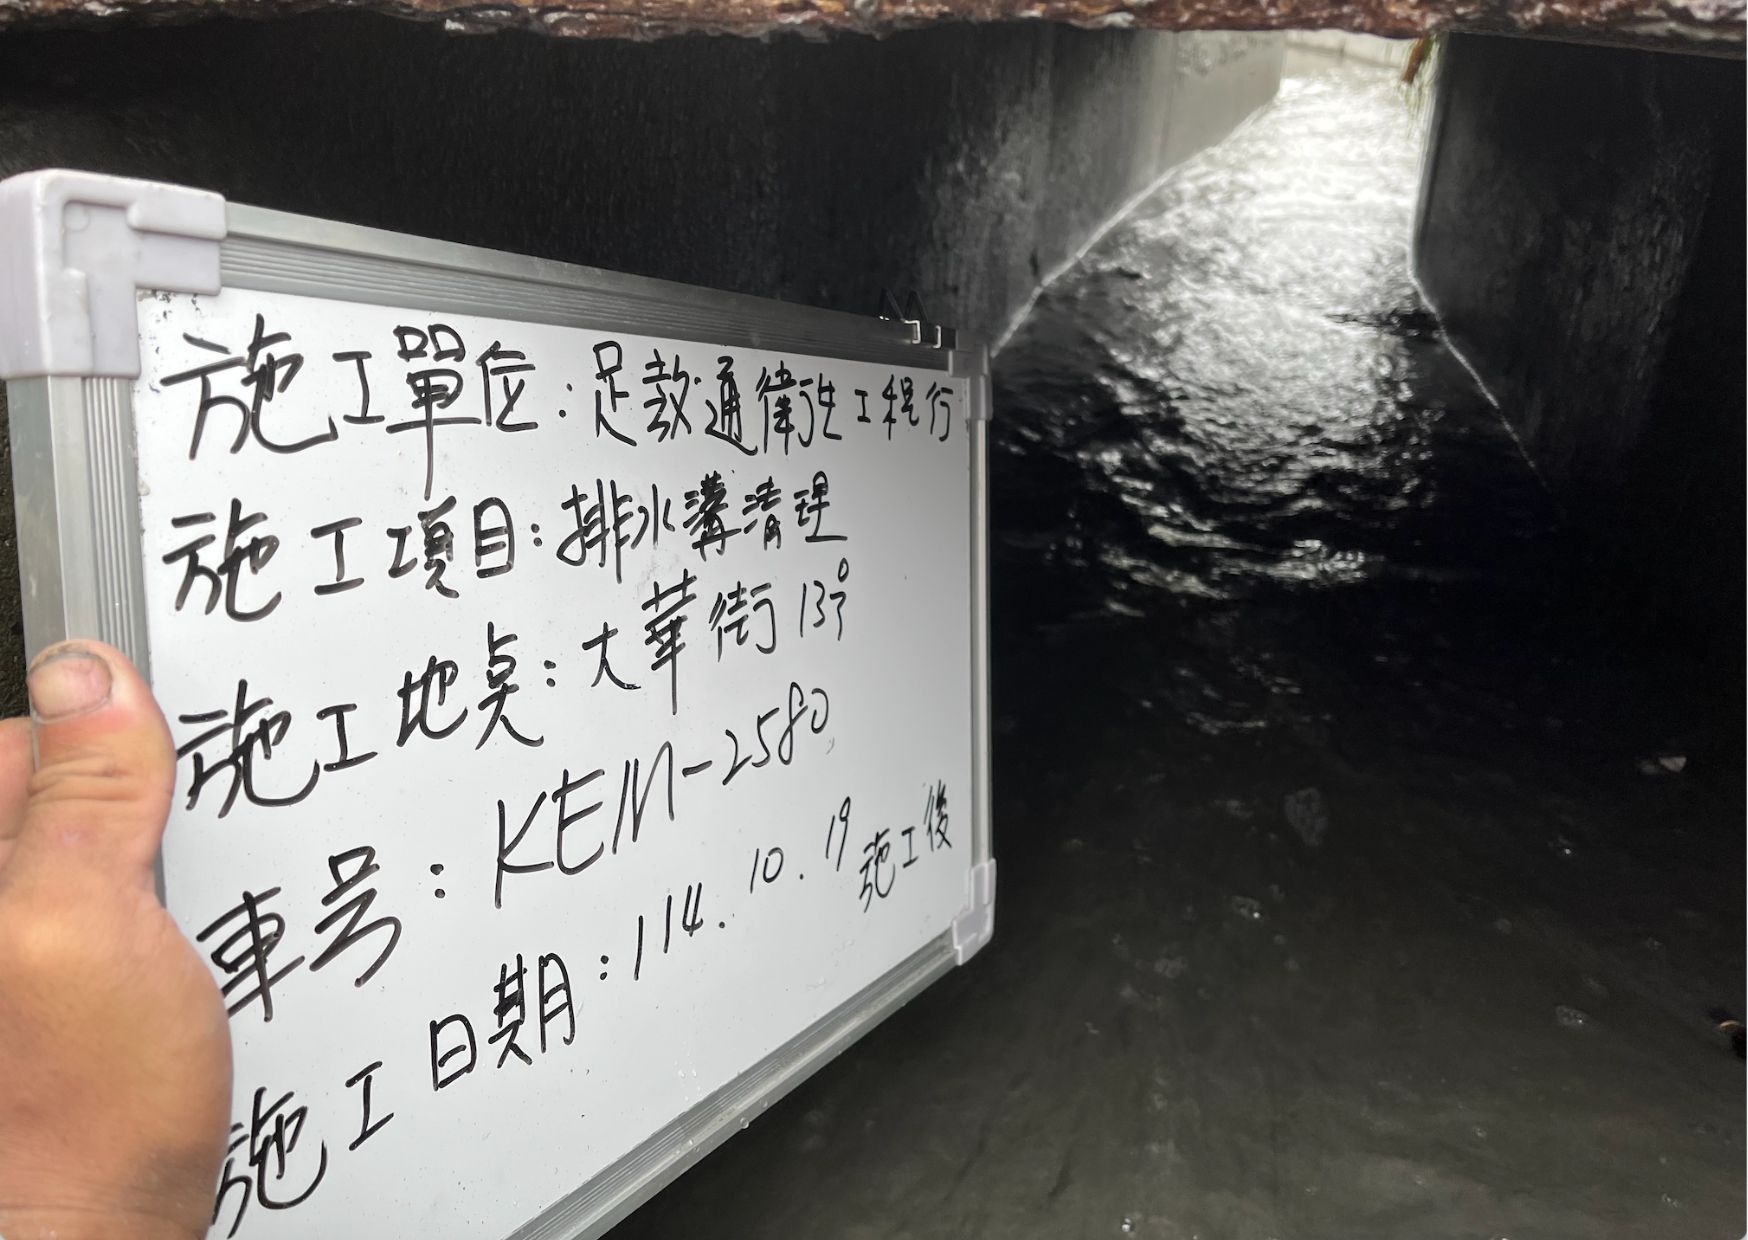 施工單位：足敦通衛生工程行
施工項目：排水溝清理
施工地點：大華街13号
車号：KEM-2580
施工日期：114.10.19 施工後